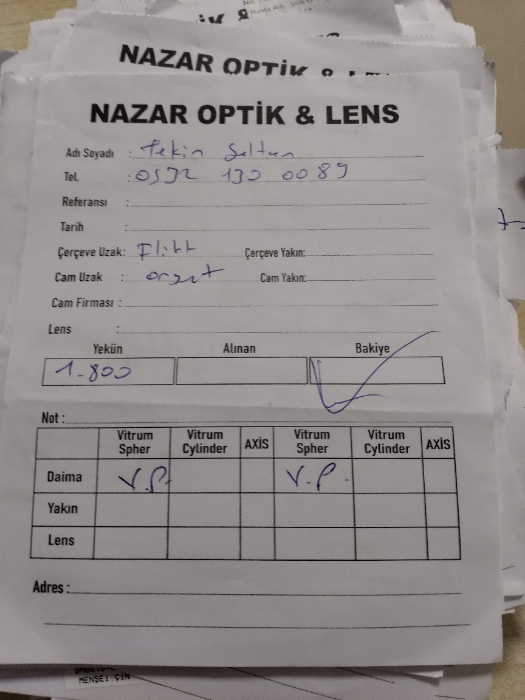 NAZAR OPTİK &
NAZAR OPTİK & LENS
Adı Soyadı : Tekin
Tel. : 0532 130 0089
Referansı :
Tarih :
Çerçeve Uzak: Flitt Çerçeve Yakın:
Cam Uzak : Cam Yakın:
Cam Firması :
Lens :
Yekün Alınan Bakiye
1-800
Not :
Vitrum Spher Vitrum Cylinder AXİS Vitrum Spher Vitrum Cylinder AXİS
Daima V.P. V.P.
Yakın
Lens
Adres :
MENŞEİ ÇİN